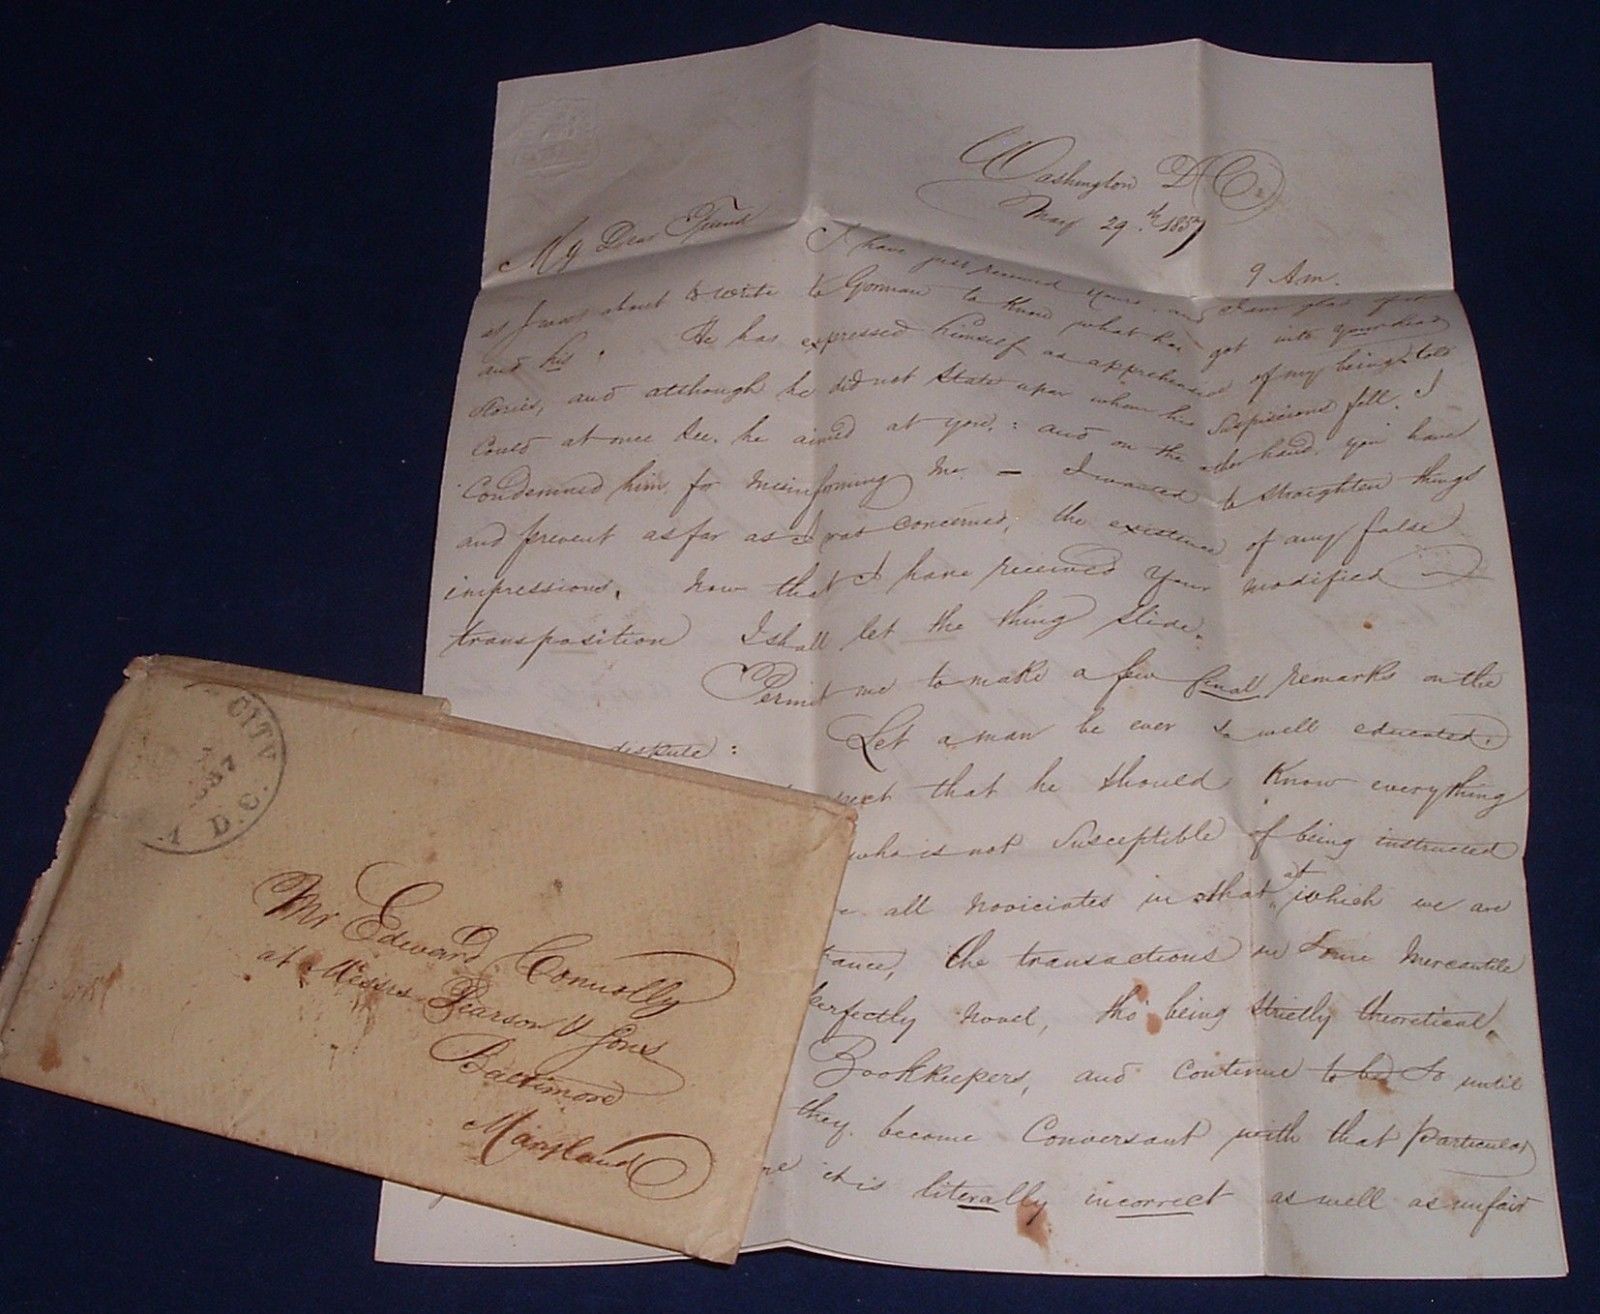 Washington D C.
May 29.th 1857
9 Am.
My Dear Friend
I have just received yours, and I am glad of it
as I was about to write to Gorman to Know what has got into your head
and his. He has expressed himself as apprehensive of my being told
stories, and although he did not State upon whom his Suspicions fell. I
Could at once See. he aimed at you.: and on the other hand. you have
Condemned him for misinforming me. — I wanted to Straighten things
and prevent as far as I was Concerned, the existence of any false
impressions. Now that I have received your modified
transposition I shall let the thing Slide.
Permit me to make a few final remarks on the
dispute: Let a man be ever so well educated.
that he should Know everything
who is not Susceptible of being instructed
all noviciates in that, at which we are
the transactions in Some Mercantile
perfectly novel, tho' being Strictly theoretical.
Bookkeepers, and continue to be so until
they become Conversant with that particular
it is literally incorrect as well as unfair
CITY
1857
D.C.
Mr Edward Connolly
at Messrs Pearson & Sons
Baltimore
Maryland